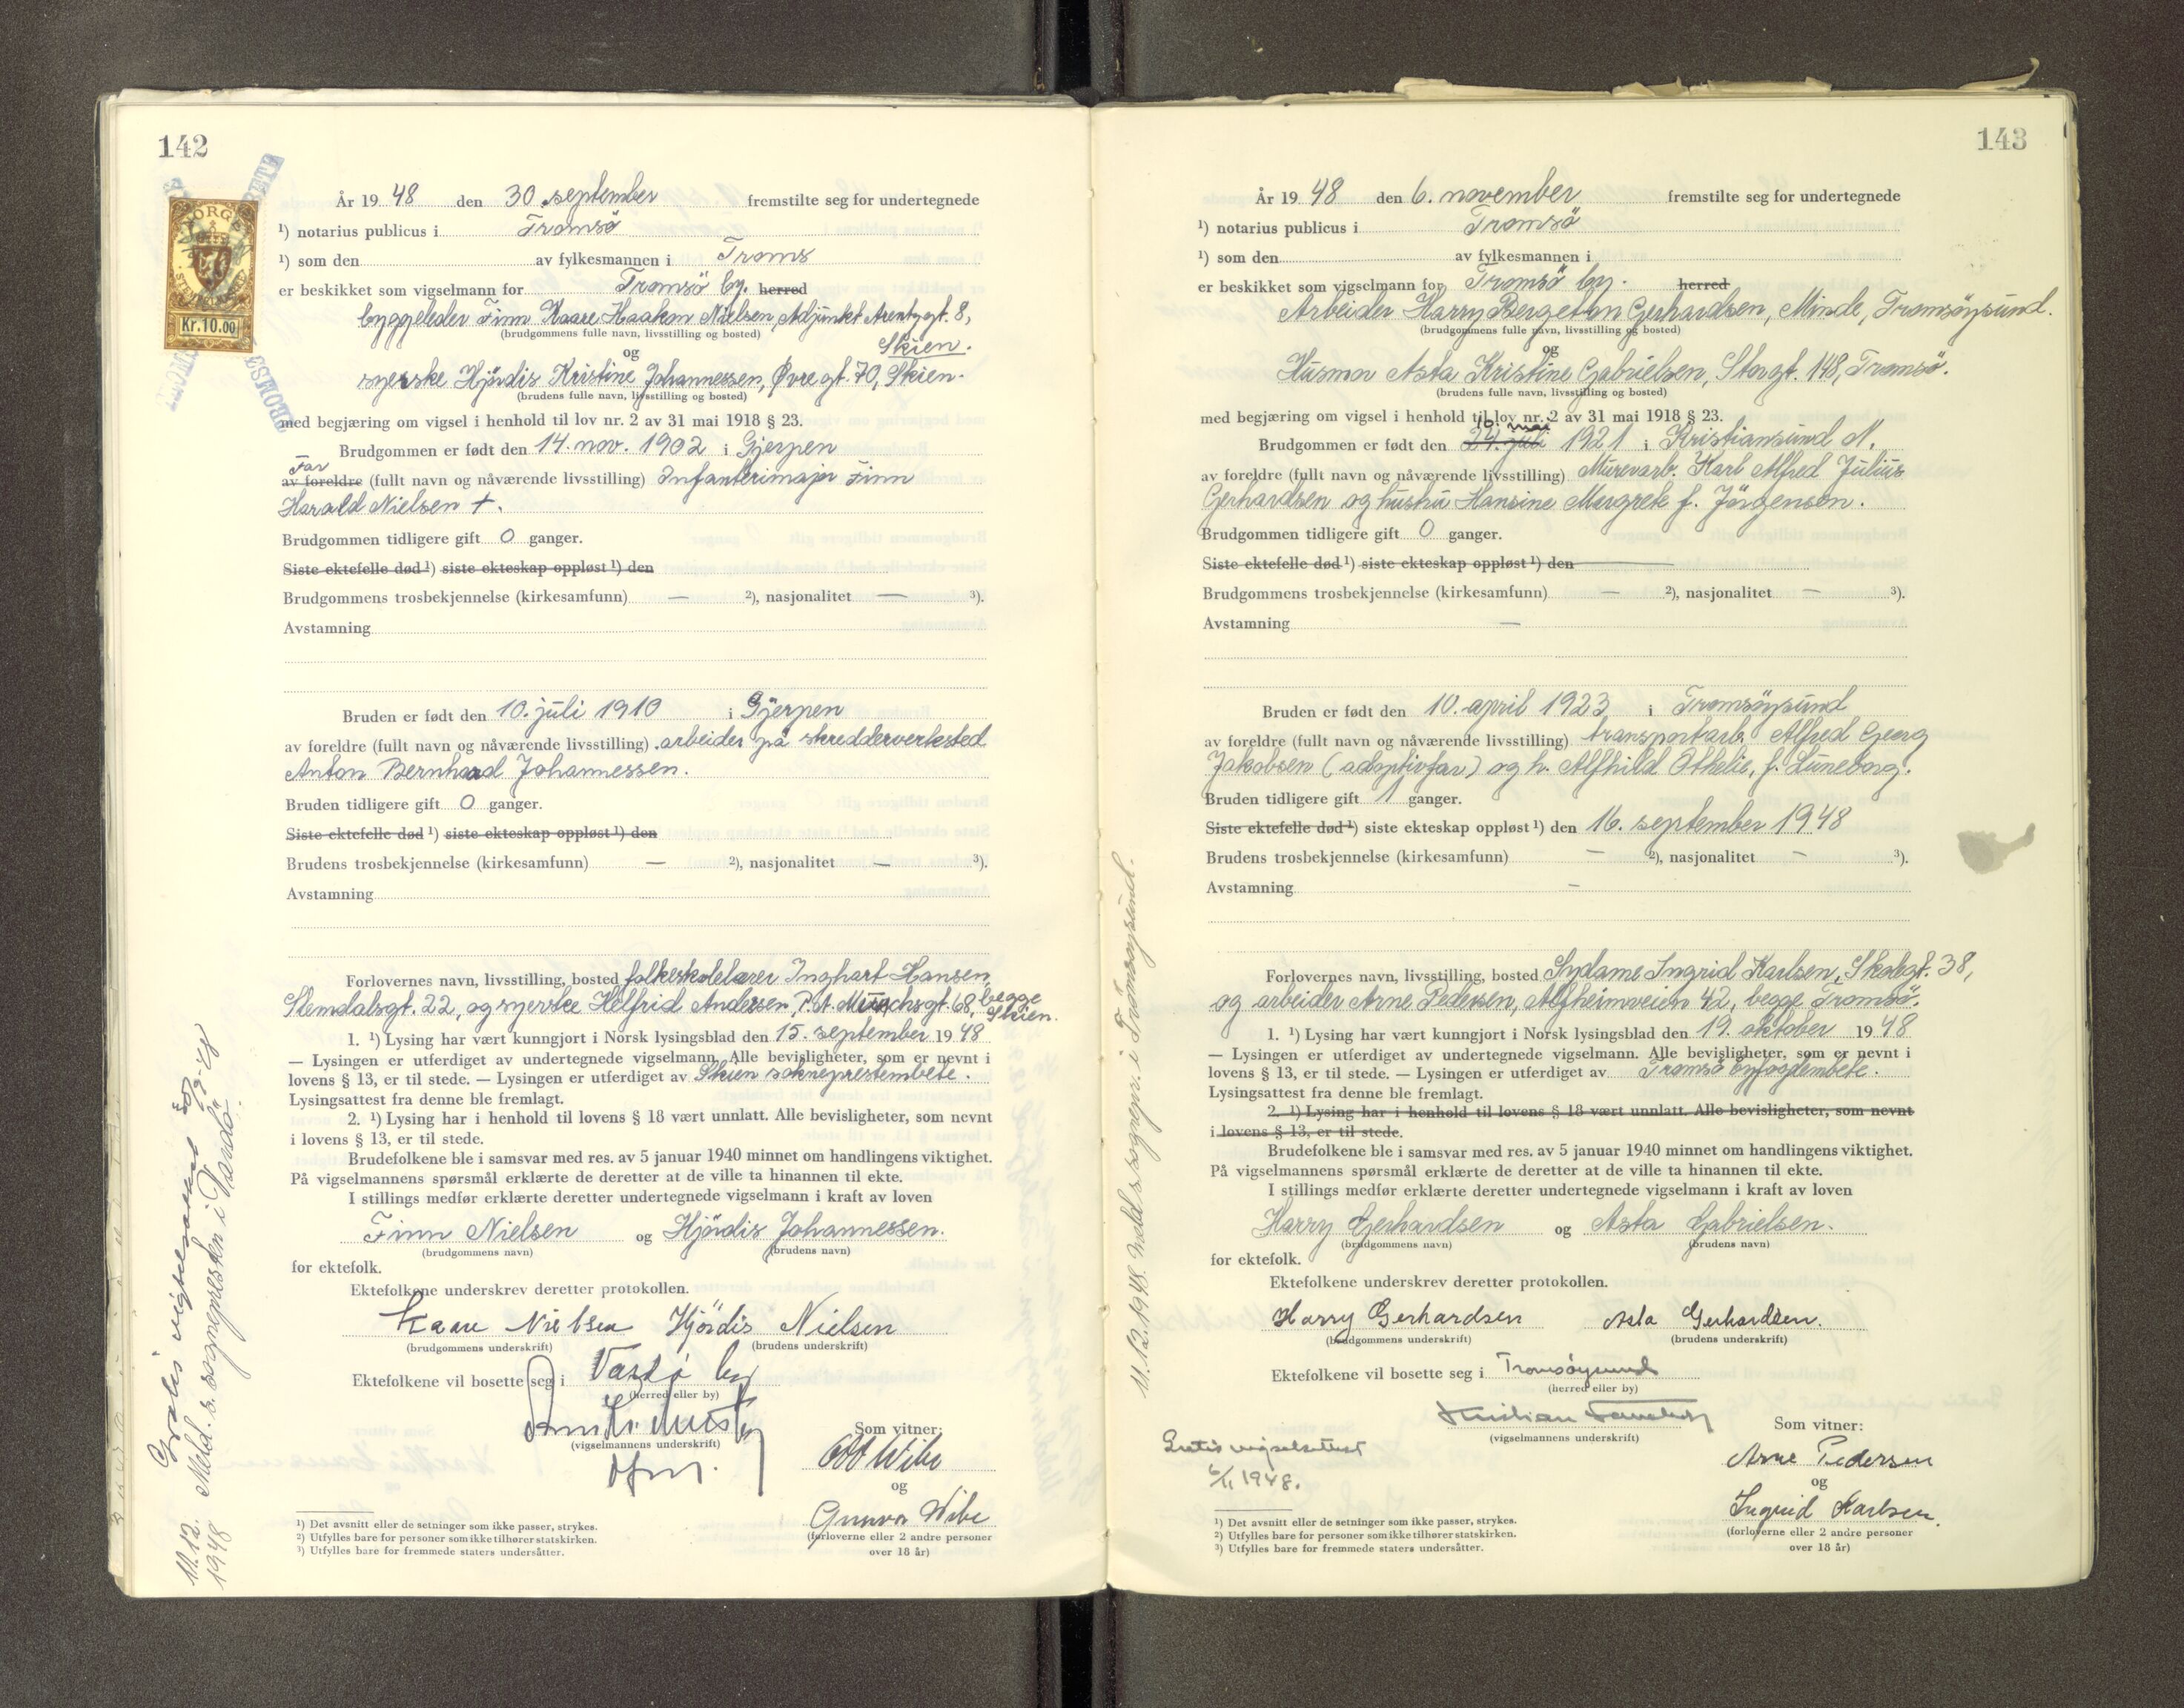 142
NORGE
Kr.10.00
TROMSØ
År 19 48 den 30. september fremstilte seg for undertegnede
¹) notarius publicus i Tromsö
¹) som den av fylkesmannen i Troms
er beskikket som vigselmann for Tromsö by. herred
byggeleder Finn Kaare Haakon Nielsen, Adjunkt Arentz gt. 8,
(brudgommens fulle navn, livsstilling og bosted)
Skien.
og
syerske Hjördis Kristine Johannessen, Øvre gt. 70, Skien.
(brudens fulle navn, livsstilling og bosted)
med begjæring om vigsel i henhold til lov nr. 2 av 31 mai 1918 § 23.
Brudgommen er født den 14. nov. 1902 i Gjerpen
Far
av foreldre (fullt navn og nåværende livsstilling) Infanterimajor Finn
Harald Nielsen +.
Brudgommen tidligere gift 0 ganger.
Siste ektefelle død ¹) siste ekteskap oppløst ¹) den
Brudgommens trosbekjennelse (kirkesamfunn) — ²), nasjonalitet — ³).
Avstamning
Bruden er født den 10. juli 1910 i Gjerpen
av foreldre (fullt navn og nåværende livsstilling) arbeider på skredderverksted
Anton Bernhard Johannessen.
Bruden tidligere gift 0 ganger.
Siste ektefelle død ¹) siste ekteskap oppløst ¹) den
Brudens trosbekjennelse (kirkesamfunn) — ²), nasjonalitet — ³).
Avstamning
Forlovernes navn, livsstilling, bosted folkeskolelærer Inghart Hansen,
Slemdalsgt. 22, og syerske Helfrid Andersen, P. A. Munchsgt. 68, begge
Skien.
1. ¹) Lysing har vært kunngjort i Norsk lysingsblad den 15. september 19 48
— Lysingen er utferdiget av undertegnede vigselmann. Alle bevisligheter, som er nevnt i
lovens § 13, er til stede. — Lysingen er utferdiget av Skien sokneprestembete.
Lysingsattest fra denne ble fremlagt.
2. ¹) Lysing har i henhold til lovens § 18 vært unnlatt. Alle bevisligheter, som nevnt
i lovens § 13, er til stede.
Brudefolkene ble i samsvar med res. av 5 januar 1940 minnet om handlingens viktighet.
På vigselmannens spørsmål erklærte de deretter at de ville ta hinannen til ekte.
I stillings medfør erklærte deretter undertegnede vigselmann i kraft av loven
Finn Nielsen og Hjördis Johannessen.
(brudgommens navn) (brudens navn)
for ektefolk.
Ektefolkene underskrev deretter protokollen.
Kaare Nielsen Hjördis Nielsen
(brudgommens underskrift) (brudens underskrift)
Ektefolkene vil bosette seg i Vardø by
(herred eller by)
(vigselmannens underskrift)
Som vitner:
Odd Wibe
og
Gunvor Wibe
(forloverne eller 2 andre personer
over 18 år)
¹) Det avsnitt eller de setninger som ikke passer, strykes.
²) Utfylles bare for personer som ikke tilhører statskirken.
³) Utfylles bare for fremmede staters undersåtter.
Gratis vigselsattest 30/9-48
11.12. Meld. s. sognepresten i Vardö.
1948
143
År 19 48 den 6. november fremstilte seg for undertegnede
¹) notarius publicus i Tromsö
¹) som den av fylkesmannen i
er beskikket som vigselmann for Tromsö by. herred
Arbeider Harry Bergeton Gerhardsen, Minde, Tromsöysund.
(brudgommens fulle navn, livsstilling og bosted)
og
Husmor Asta Kristine Gabrielsen, Storgt. 148, Tromsö.
(brudens fulle navn, livsstilling og bosted)
med begjæring om vigsel i henhold til lov nr. 2 av 31 mai 1918 § 23.
16. mai
Brudgommen er født den 24. juli 1921 i Kristiansund N.
av foreldre (fullt navn og nåværende livsstilling) Murerarb. Karl Alfred Julius
Gerhardsen og hustru Hansine Margrete f. Jörgensen.
Brudgommen tidligere gift 0 ganger.
Siste ektefelle død ¹) siste ekteskap oppløst ¹) den
Brudgommens trosbekjennelse (kirkesamfunn) — ²), nasjonalitet — ³).
Avstamning —
Bruden er født den 10. april 1923 i Tromsöysund
av foreldre (fullt navn og nåværende livsstilling) transportarb. Alfred Georg
Jakobsen (adoptivfar) og h. Alfhild Othelie, f. Lüneborg.
Bruden tidligere gift 1 ganger.
Siste ektefelle død ¹) siste ekteskap oppløst ¹) den 16. september 1948
Brudens trosbekjennelse (kirkesamfunn) — ²), nasjonalitet — ³).
Avstamning —
Forlovernes navn, livsstilling, bosted Sydame Ingrid Karlsen, Skolegt. 38,
og arbeider Arne Pedersen, Alfheimveien 42, begge Tromsö.
1. ¹) Lysing har vært kunngjort i Norsk lysingsblad den 19. oktober 19 48
— Lysingen er utferdiget av undertegnede vigselmann. Alle bevisligheter, som er nevnt i
lovens § 13, er til stede. — Lysingen er utferdiget av Tromsö byfogdembete.
Lysingsattest fra denne ble fremlagt.
2. ¹) Lysing har i henhold til lovens § 18 vært unnlatt. Alle bevisligheter, som nevnt
i lovens § 13, er til stede.
Brudefolkene ble i samsvar med res. av 5 januar 1940 minnet om handlingens viktighet.
På vigselmannens spørsmål erklærte de deretter at de ville ta hinannen til ekte.
I stillings medfør erklærte deretter undertegnede vigselmann i kraft av loven
Harry Gerhardsen og Asta Gabrielsen.
(brudgommens navn) (brudens navn)
for ektefolk.
Ektefolkene underskrev deretter protokollen.
Harry Gerhardsen Asta Gerhardsen.
(brudgommens underskrift) (brudens underskrift)
Ektefolkene vil bosette seg i Tromsöysund
(herred eller by)
(vigselmannens underskrift)
Som vitner:
Arne Pedersen
og
Ingrid Karlsen.
(forloverne eller 2 andre personer
over 18 år)
Gratis vigselattest
6/11 1948.
¹) Det avsnitt eller de setninger som ikke passer, strykes.
²) Utfylles bare for personer som ikke tilhører statskirken.
³) Utfylles bare for fremmede staters undersåtter.
11.12.1948. Meld. s. sognepr. i Tromsöysund.